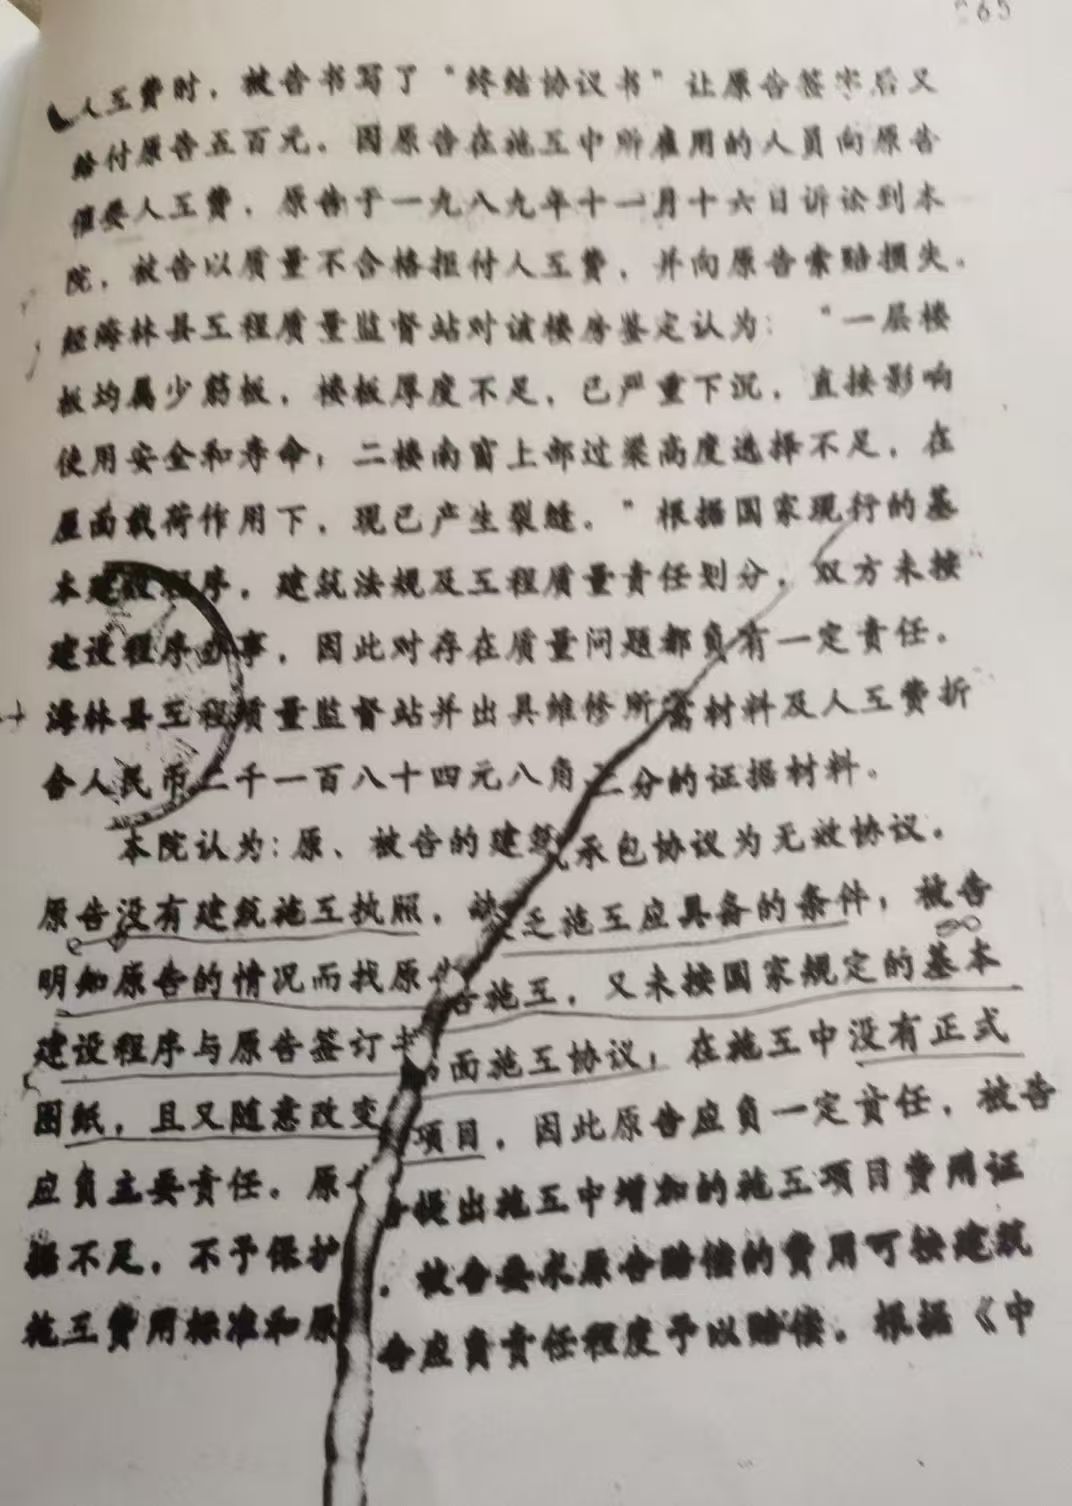 265
人工费时，被告书写了“终结协议书”让原告签字后又
给付原告五百元。因原告在施工中所雇用的人员向原告
催要人工费，原告于一九八九年十一月十六日诉讼到本
院，被告以质量不合格拒付人工费，并向原告索赔损失。
经海林县工程质量监督站对该楼房鉴定认为：“一层楼
板均属少筋板，楼板厚度不足，已严重下沉，直接影响
使用安全和寿命；二楼南窗上部过梁高度选择不足，在
屋面载荷作用下，现已产生裂缝。”根据国家现行的基
本建设程序，建筑法规及工程质量责任划分，双方未按
建设程序办事，因此对存在质量问题都负有一定责任。
海林县工程质量监督站并出具维修所需材料及人工费折
合人民币二千一百八十四元八角二分的证据材料。
本院认为：原、被告的建筑承包协议为无效协议。
原告没有建筑施工执照，缺乏施工应具备的条件，被告
明知原告的情况而找原告施工，又未按国家规定的基本
建设程序与原告签订书面施工协议，在施工中没有正式
图纸，且又随意改变项目，因此原告应负一定责任，被告
应负主要责任。原告提出施工中增加的施工项目费用证
据不足，不予保护。被告要求原告赔偿的费用可按建筑
施工费用标准和原告应负责任程度予以赔偿。根据《中